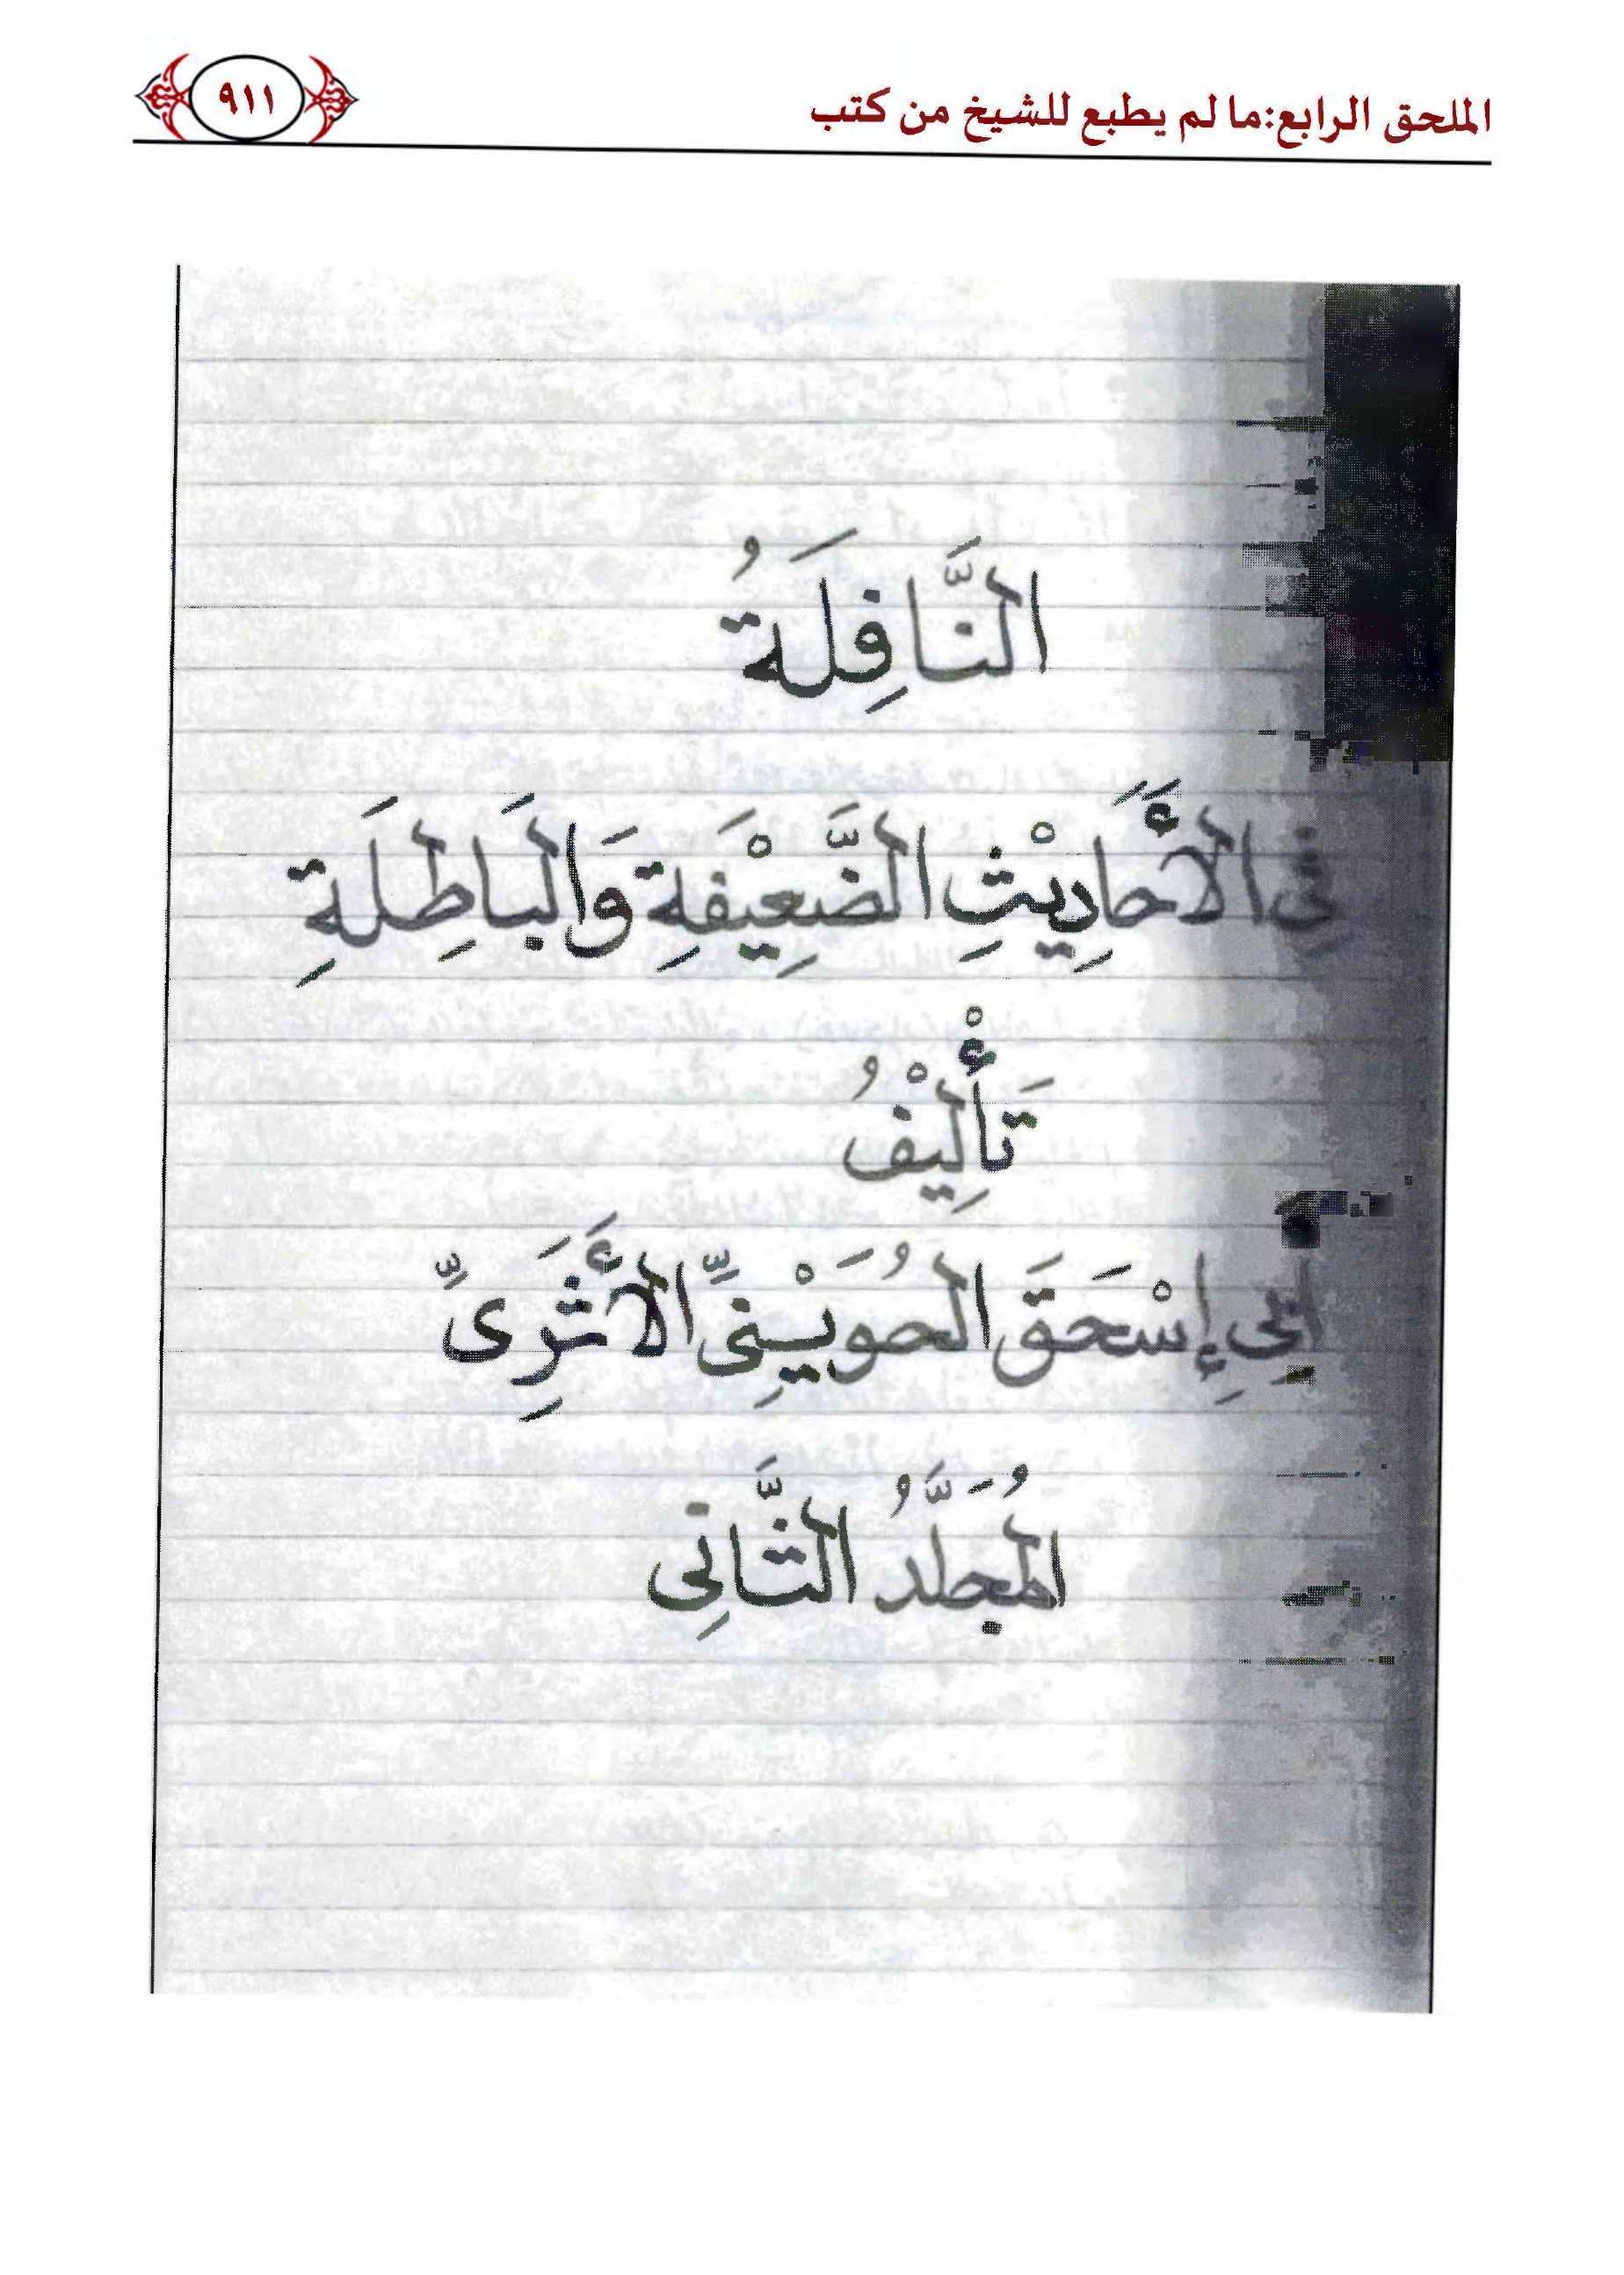 الملحق الرابع:ما لم يطبع للشيخ من كتب
٩١١
النَّافِلَةُ
فِى الأَحَادِيْثِ الضَّعِيْفَةِ وَالبَاطِلَةِ
تَأْلِيْفُ
أَبِى إِسْحَقَ الحُوَيْنِىِّ الأَثَرِىِّ
المُجَلَّدُ الثَّانِى